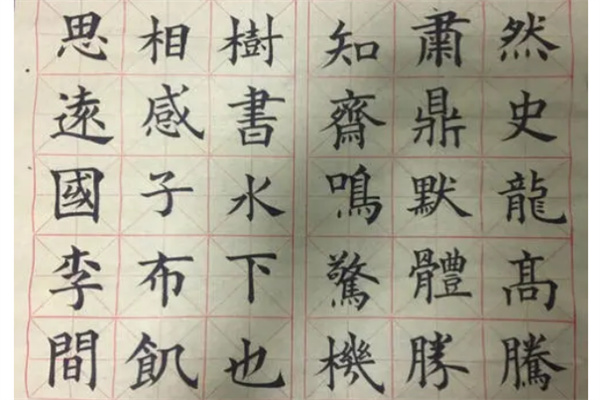 然史龍髙騰
肅鼎默體勝
知齋鳴驚機
樹書水下也
相感子布飢
思遠國李間